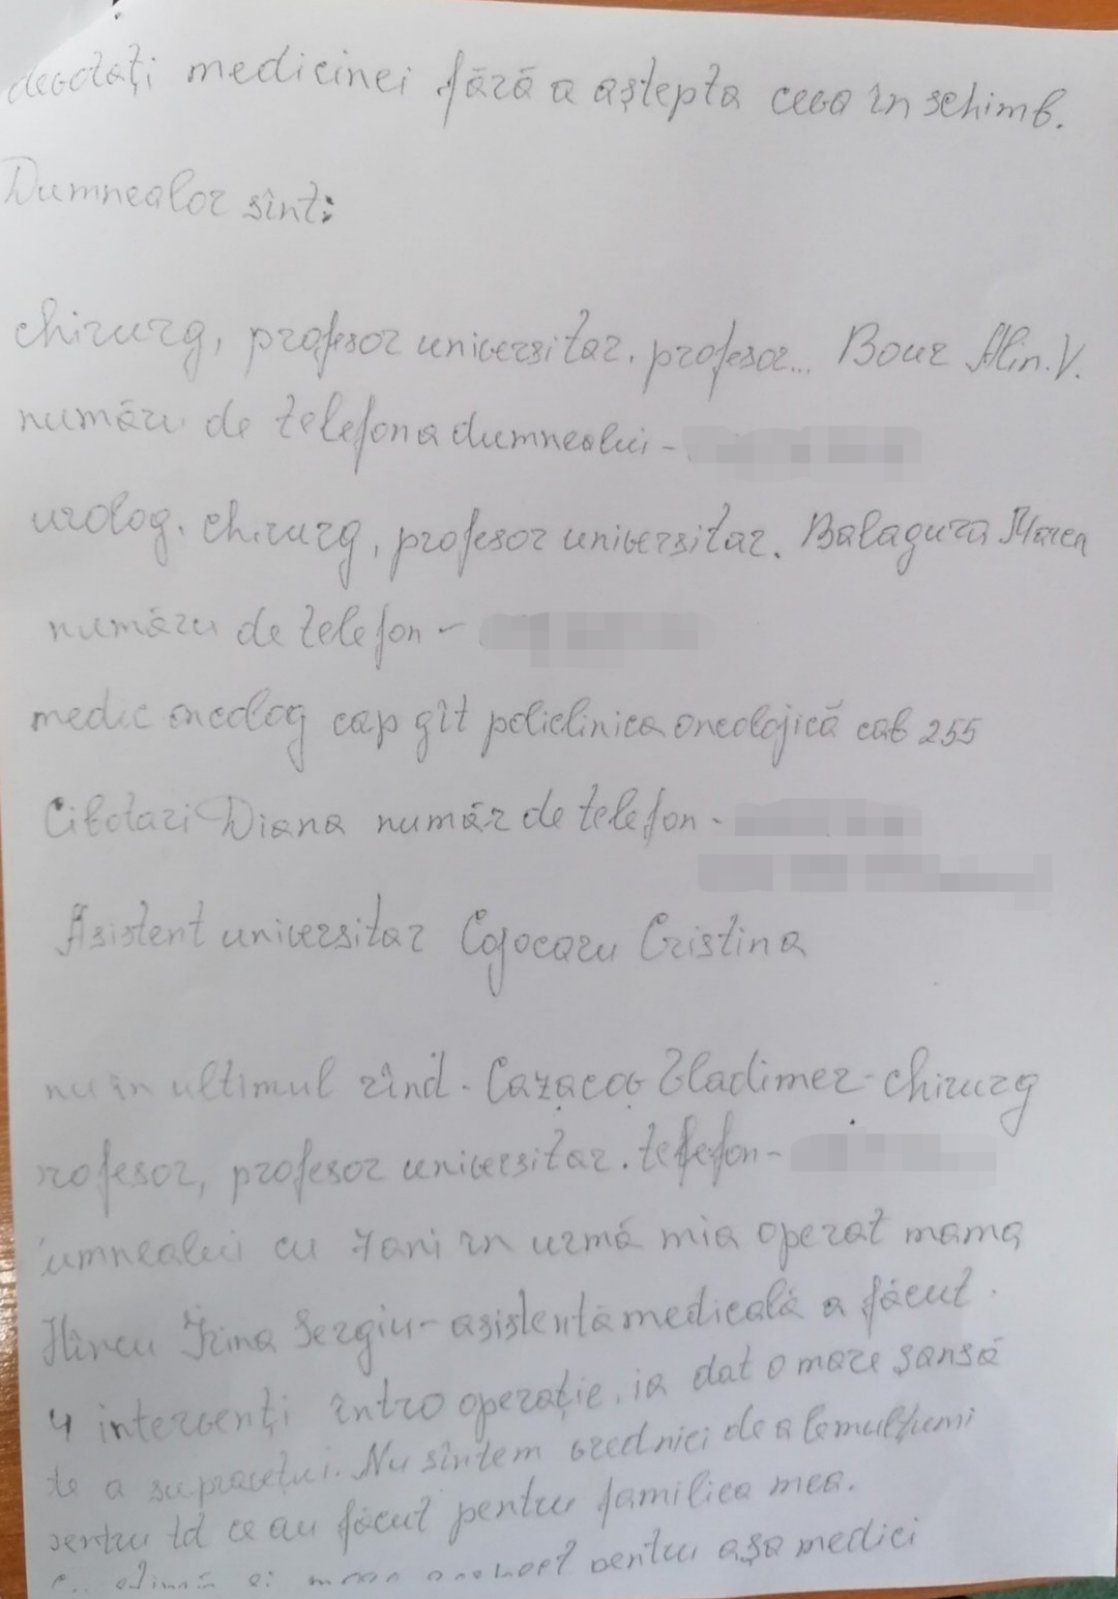 devotați medicinei fără a aștepta ceva în schimb.
Dumnealor sînt:
chirurg, profesor universitar, profesor... Bour Alin.V.
număru de telefon a dumnealui -
urolog, chirurg, profesor universitar. Balagura
număru de telefon -
medic oncolog cap gît policlinica oncolojică cab 255
Cibotari Diana număr de telefon -
Asistent universitar Cojocaru Cristina
nu în ultimul rînd - Cazacov Vladimer - chirurg
rofesor, profesor universitar. telefon -
umnealui cu 7 ani în urmă mia operat mama
Hîncu Irina Sergiu - asistentă medicală a făcut
4 intervenți întro operație, ia dat o mare șansă
de a supraețui. Nu sîntem vrednici de a le mulțumi
pentru tot ce au făcut pentru familiea mea.
pentru așa medici